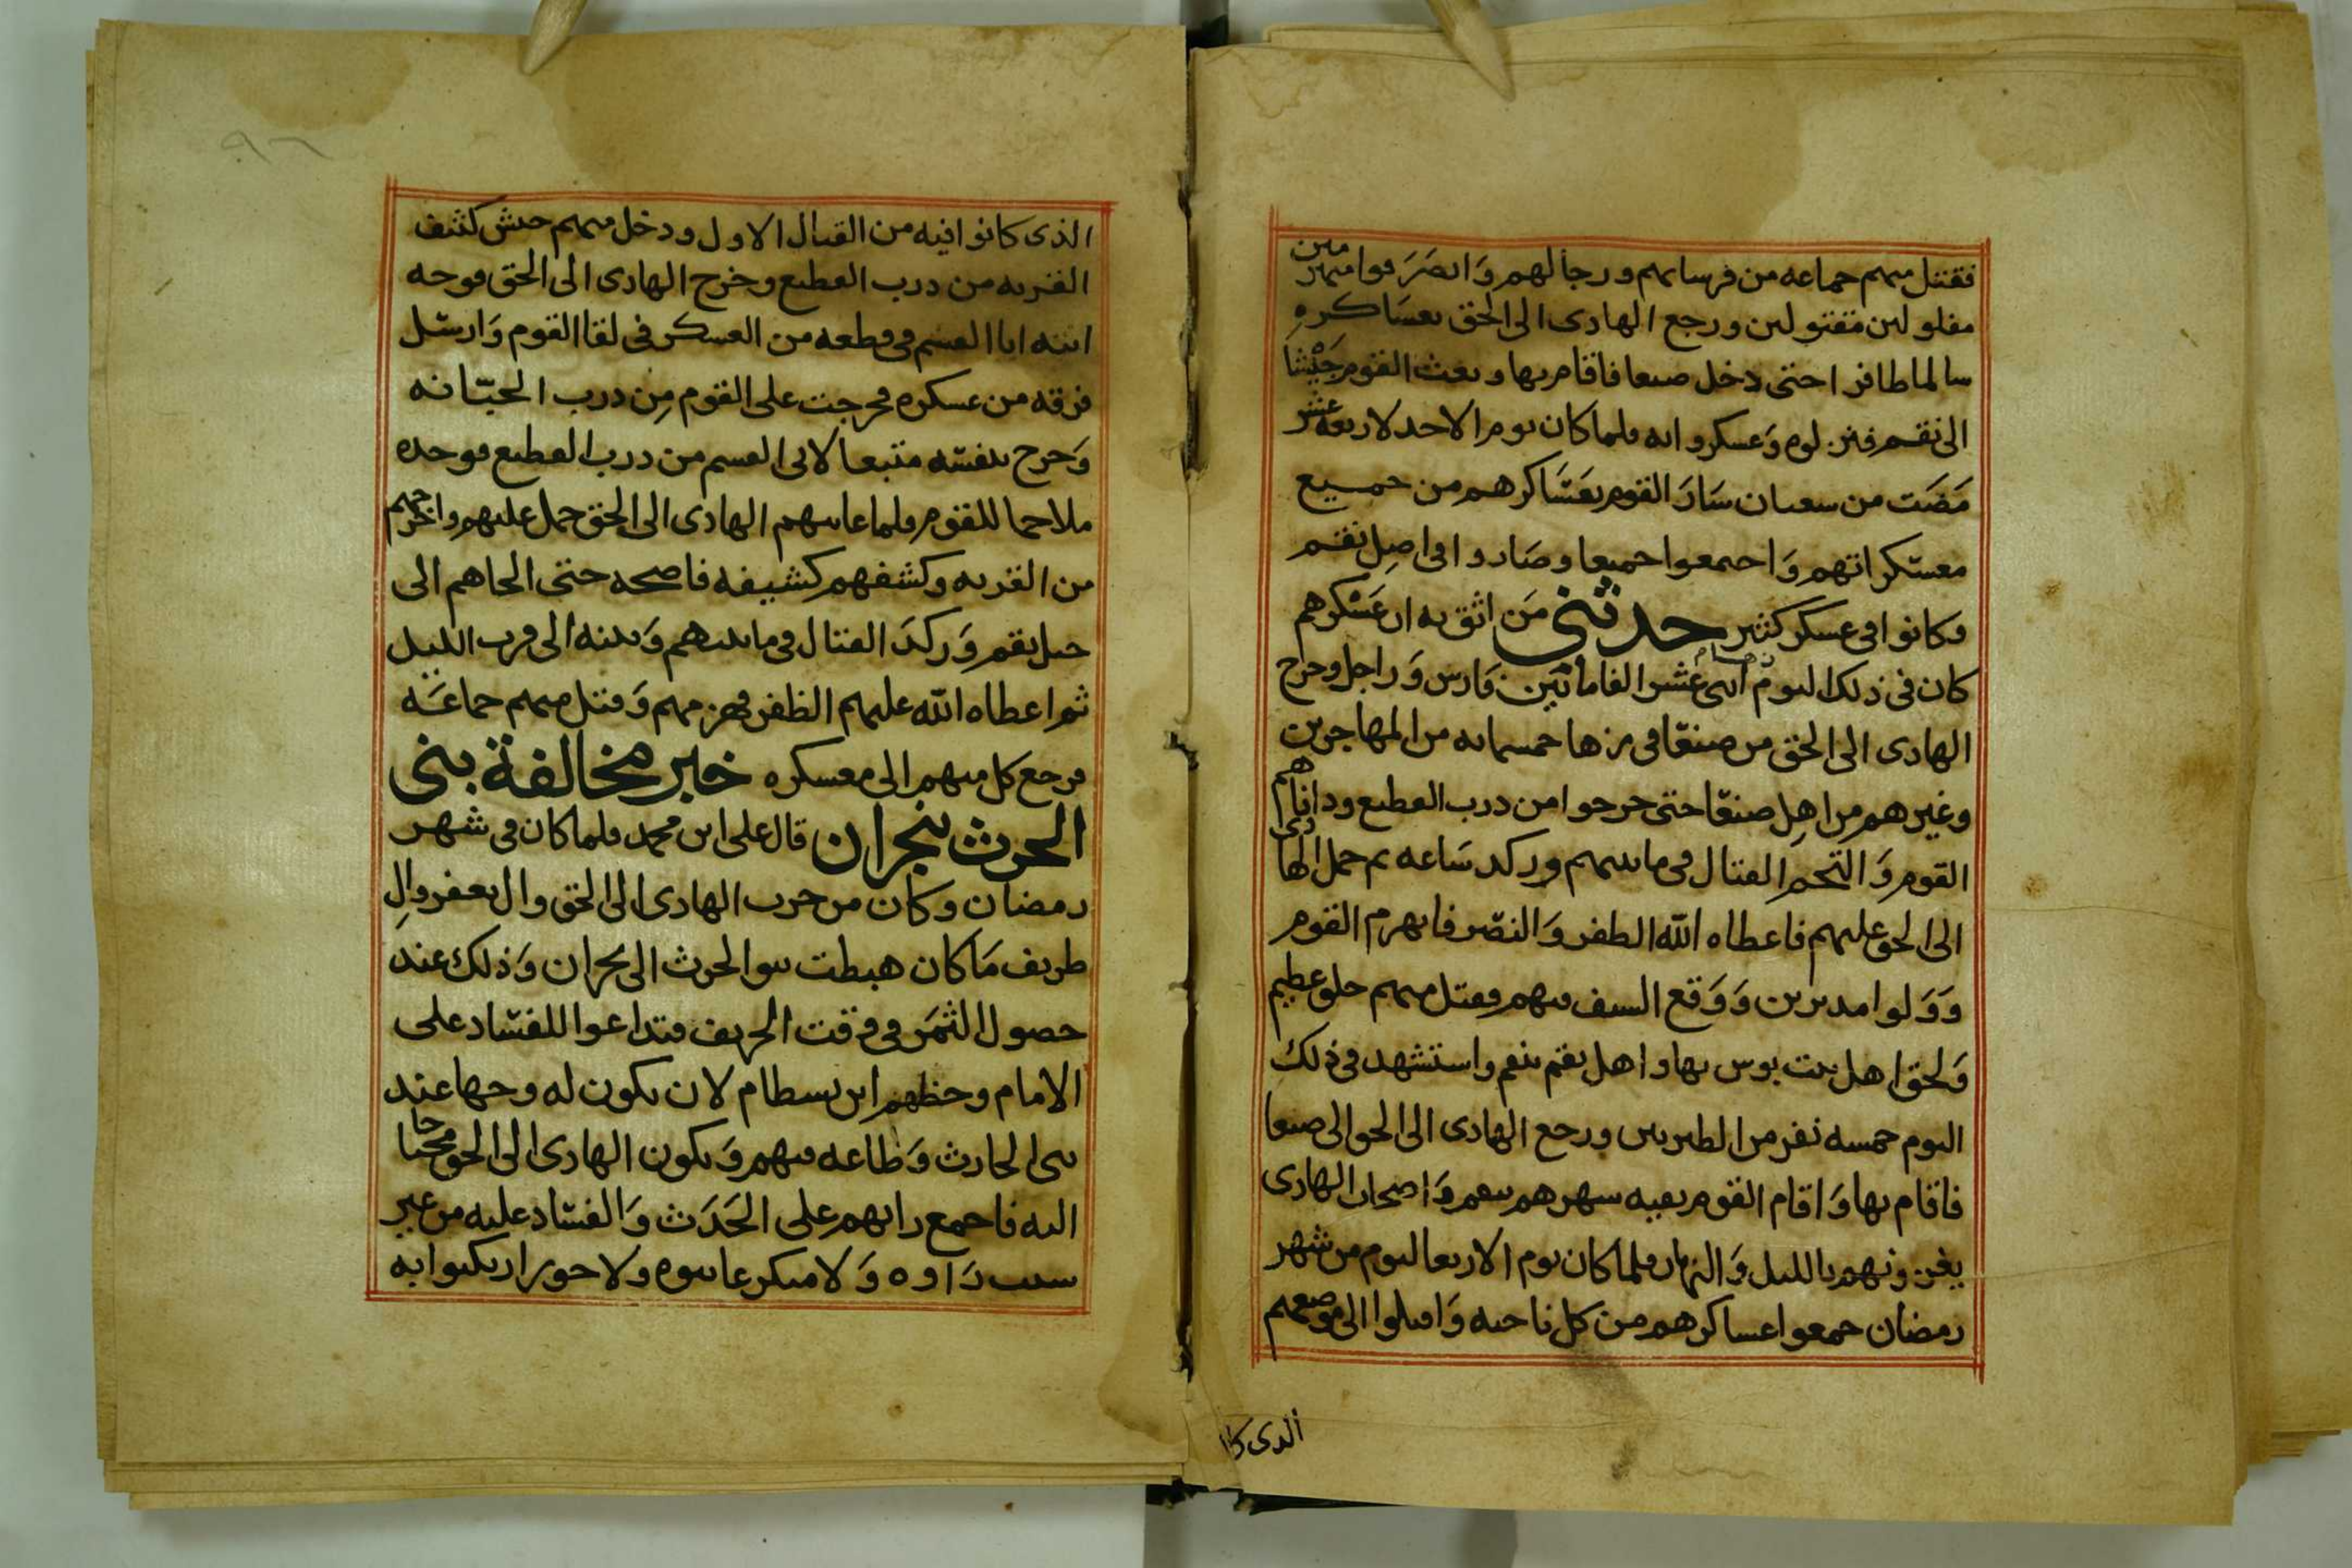 فقتل منهم جماعه من فرسانهم ورجالهم وَانصَرَفوا منهزمين
مفلولين مقتولين ورجع الهادى الى الحق بعسَاكره
سالما ظافرا حتى دخل صنعا فاقام بها وبعث القوم جَيْشا
الى نقم فنزلوه وَعسكروا به فلما كان يوم الاحد لاربعة عشر
مَضَت من شعبان سَارَ القوم بعَسَاكرهم من جميع
معسكراتهم وَاجمعوا جميعا وصَاروا فى اصل نقم
وكانوا فى عسكر كثير حدثنى مَن اثق به ان عَسْكرهم
كان فى ذلك اليوم اثنى عشر الفا مائتين فارس وَراجل وخرج
الهادى الى الحق من صنعَا فى زها خمسمايه من المهاجرين
وغيرهم من اهل صنعَا حتى خرجوا من درب القطيع ودانَاهم
القوم وَالتحم القتال فى ما بينهم وركد سَاعه ثم حمل الهادى
الى الحق عليهم فاعطاه الله الظفر وَالنصر فانهزم القوم
وَوَلوا مدبرين وَوَقع السيف فيهم فقتل منهم خلق عظيم
وَلحق اهل بيت بوس بها واهل نقم بنقم واستشهد فى ذلك
اليوم خمسه نفر من الطبريين ورجع الهادى الى الحق الى صنعا
فاقام بها وَاقام القوم بقيه شهرهم بنقم وَاصحاب الهادى
يغزونهم بالليل وَالنهار فلما كان يوم الاربعا ليوم من شهر
رمضان جمعوا عساكرهم من كل ناحيه وَاقبلوا الى موضعهم
الذى كا
٩٦
الذى كانوا فيه من القتال الاول ودخل منهم جيش كثيف
القريه من درب القطيع وخرج الهادى الى الحق فوجه
ابنه ابا القسم فى قطعه من العسكر فى لقا القوم وَارسَل
فرقه من عسكره فخرجت على القوم مِن درب الجبّانه
وَخرج بنفسه متبعا لابى القسم من درب القطيع فوجده
ملاحما للقوم فلما عاينهم الهادى الى الحق حمل عليهم واخرجهم
من القريه وكشفهم كشيفه فاضحه حتى الجاهم الى
جبل نقم وَركدَ القتال فى ما بينهم وَبينه الى قرب الليل
ثم اعطاه الله عليهم الظفر فهزمهم وَقتل منهم جماعَه
فرجع كل منهم الى معسكره خبر مخالفة بنى
الحرث بنجران قال على ابن محمد فلما كان فى شهر
رمضان وكان من حرب الهادى الى الحق وال يعفر والِ
طريف مَا كان هبطت بنوا الحرث الى نجران وَذلك عند
حصول الثمَر فى وقت الخريف فتداعوا للفسَاد على
الامام وحظهم ابن بسطام لان يكون له وجها عند
بنى الحارث وَطاعه فيهم وَيكون الهادى الى الحق محتاجا
اليه فاجمع رايهم على الحَدَث وَالفسَاد عليه من غير
سبب رَاوه وَلا منكر عاينوه ولا جور ارتكبوا به